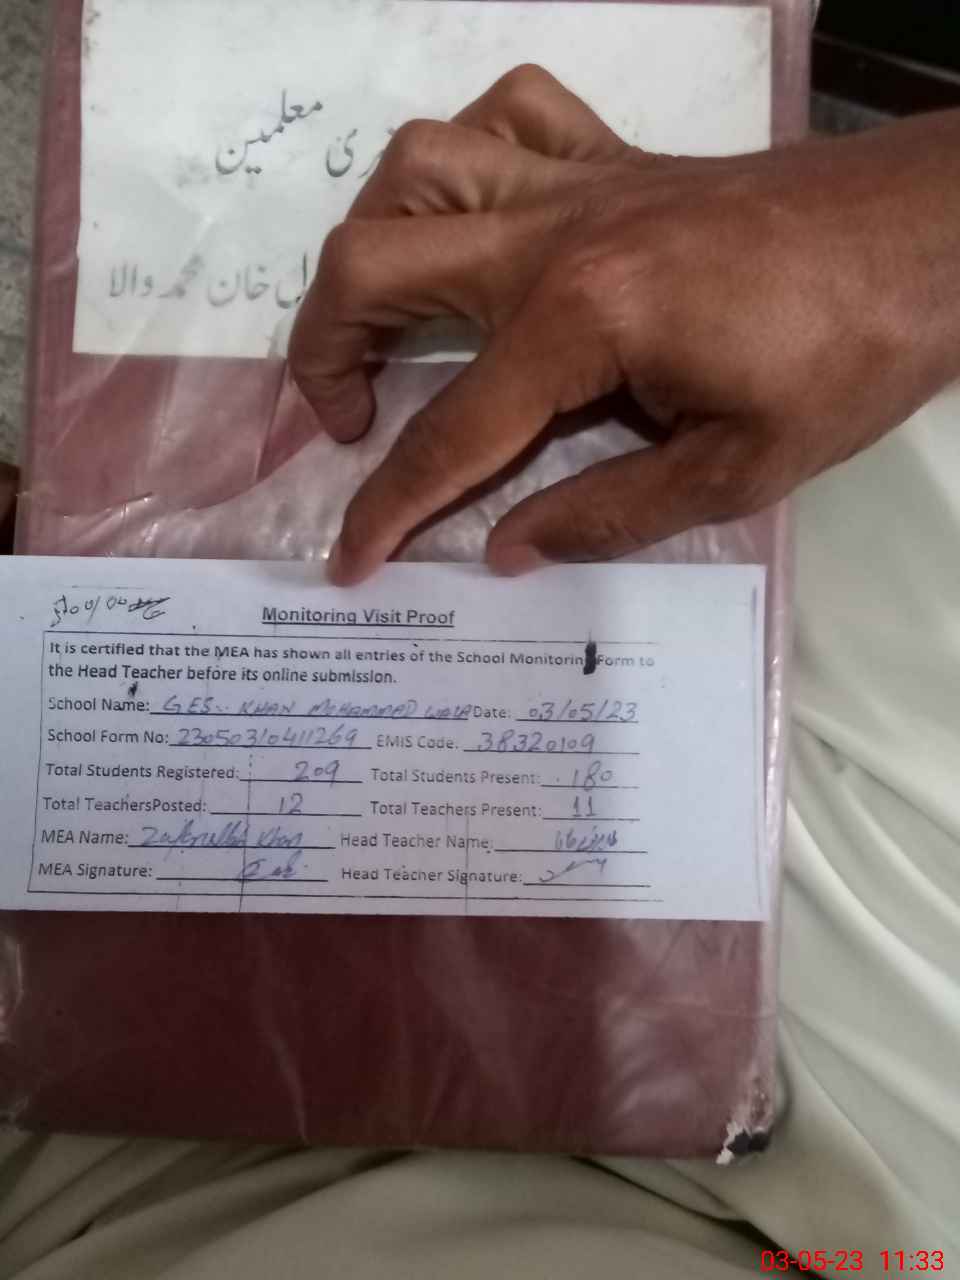 معلمین
خان محمد والا
Monitoring Visit Proof
It is certified that the MEA has shown all entries of the School Monitorin Form to
the Head Teacher before its online submission.
School Name: GES.. KHAN MOHAMMAD WALA Date: 03/05/23
School Form No: 23050310411269 EMIS Code: 38320109
Total Students Registered: 209 Total Students Present: 180
Total TeachersPosted: 12 Total Teachers Present: 11
MEA Name: Khan Head Teacher Name:
MEA Signature: Head Teacher Signature:
03-05-23 11:33